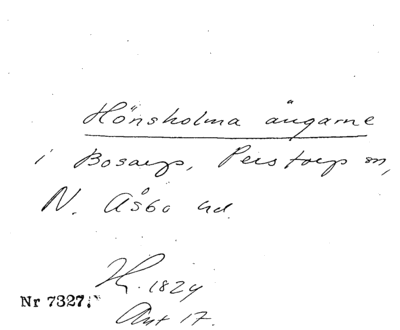 Hönsholma ängarne
i Bosarp, Perstorp sn,
N. Åsbo hd.
H. 1824
Akt 17.
Nr 7327.